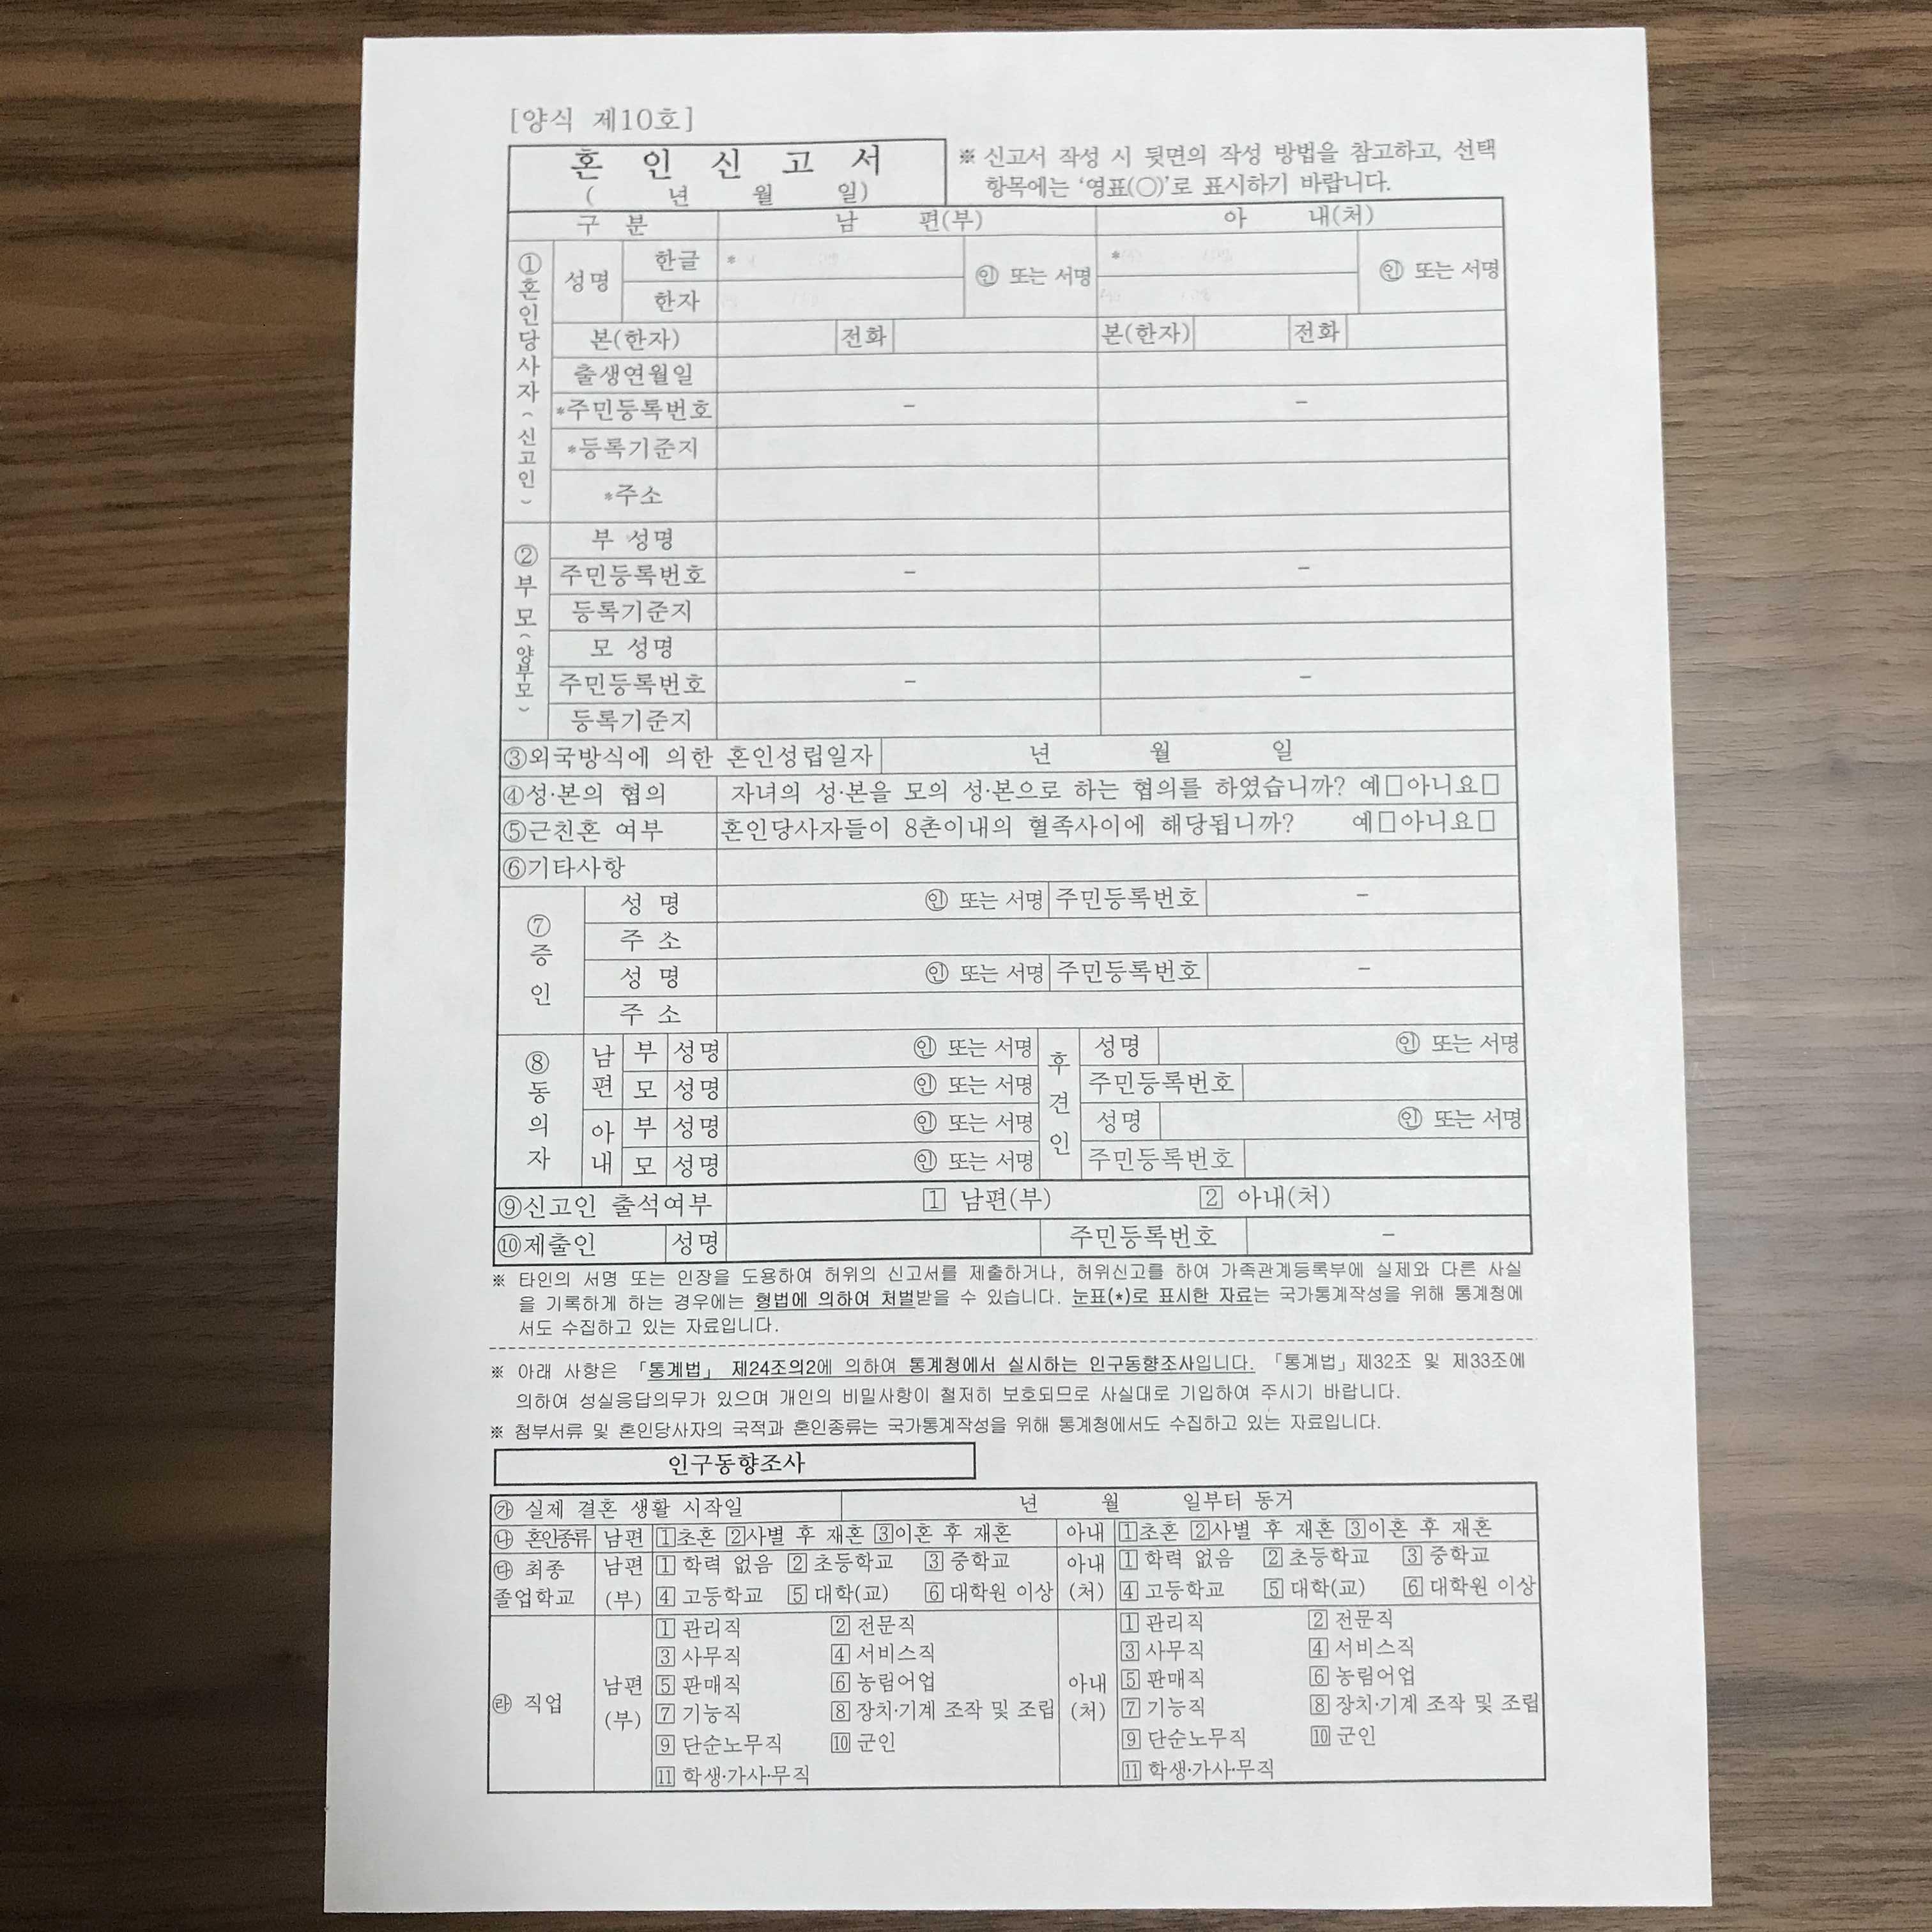 [양식 제10호]
혼 인 신 고 서
( 년 월 일)
※ 신고서 작성 시 뒷면의 작성 방법을 참고하고, 선택
항목에는 ‘영표(○)’로 표시하기 바랍니다.
구 분 남 편(부) 아 내(처)
①혼인당사자(신고인)
성명 한글 * ㊞ 또는 서명 * ㊞ 또는 서명
한자
본(한자) 전화 본(한자) 전화
출생연월일
*주민등록번호 - -
*등록기준지
*주소
②부모(양부모)
부 성명
주민등록번호 - -
등록기준지
모 성명
주민등록번호 - -
등록기준지
③외국방식에 의한 혼인성립일자 년 월 일
④성·본의 협의 자녀의 성·본을 모의 성·본으로 하는 협의를 하였습니까? 예□아니요□
⑤근친혼 여부 혼인당사자들이 8촌이내의 혈족사이에 해당됩니까? 예□아니요□
⑥기타사항
⑦증인
성 명 ㊞ 또는 서명 주민등록번호 -
주 소
성 명 ㊞ 또는 서명 주민등록번호 -
주 소
⑧동의자
남편 부 성명 ㊞ 또는 서명 후견인 성명 ㊞ 또는 서명
모 성명 ㊞ 또는 서명 주민등록번호
아내 부 성명 ㊞ 또는 서명 성명 ㊞ 또는 서명
모 성명 ㊞ 또는 서명 주민등록번호
⑨신고인 출석여부 1 남편(부) 2 아내(처)
⑩제출인 성명 주민등록번호 -
※ 타인의 서명 또는 인장을 도용하여 허위의 신고서를 제출하거나, 허위신고를 하여 가족관계등록부에 실제와 다른 사실
을 기록하게 하는 경우에는 형법에 의하여 처벌받을 수 있습니다. 눈표(*)로 표시한 자료는 국가통계작성을 위해 통계청에
서도 수집하고 있는 자료입니다.
※ 아래 사항은 「통계법」 제24조의2에 의하여 통계청에서 실시하는 인구동향조사입니다. 「통계법」제32조 및 제33조에
의하여 성실응답의무가 있으며 개인의 비밀사항이 철저히 보호되므로 사실대로 기입하여 주시기 바랍니다.
※ 첨부서류 및 혼인당사자의 국적과 혼인종류는 국가통계작성을 위해 통계청에서도 수집하고 있는 자료입니다.
인구동향조사
㉮ 실제 결혼 생활 시작일 년 월 일부터 동거
㉯ 혼인종류 남편 1초혼 2사별 후 재혼 3이혼 후 재혼 아내 1초혼 2사별 후 재혼 3이혼 후 재혼
㉰ 최종 남편 1 학력 없음 2 초등학교 3 중학교 아내 1 학력 없음 2 초등학교 3 중학교
졸업학교 (부) 4 고등학교 5 대학(교) 6 대학원 이상 (처) 4 고등학교 5 대학(교) 6 대학원 이상
㉱ 직업
남편 (부)
1 관리직 2 전문직
3 사무직 4 서비스직
5 판매직 6 농림어업
7 기능직 8 장치·기계 조작 및 조립
9 단순노무직 10 군인
11 학생·가사·무직
아내 (처)
1 관리직 2 전문직
3 사무직 4 서비스직
5 판매직 6 농림어업
7 기능직 8 장치·기계 조작 및 조립
9 단순노무직 10 군인
11 학생·가사·무직